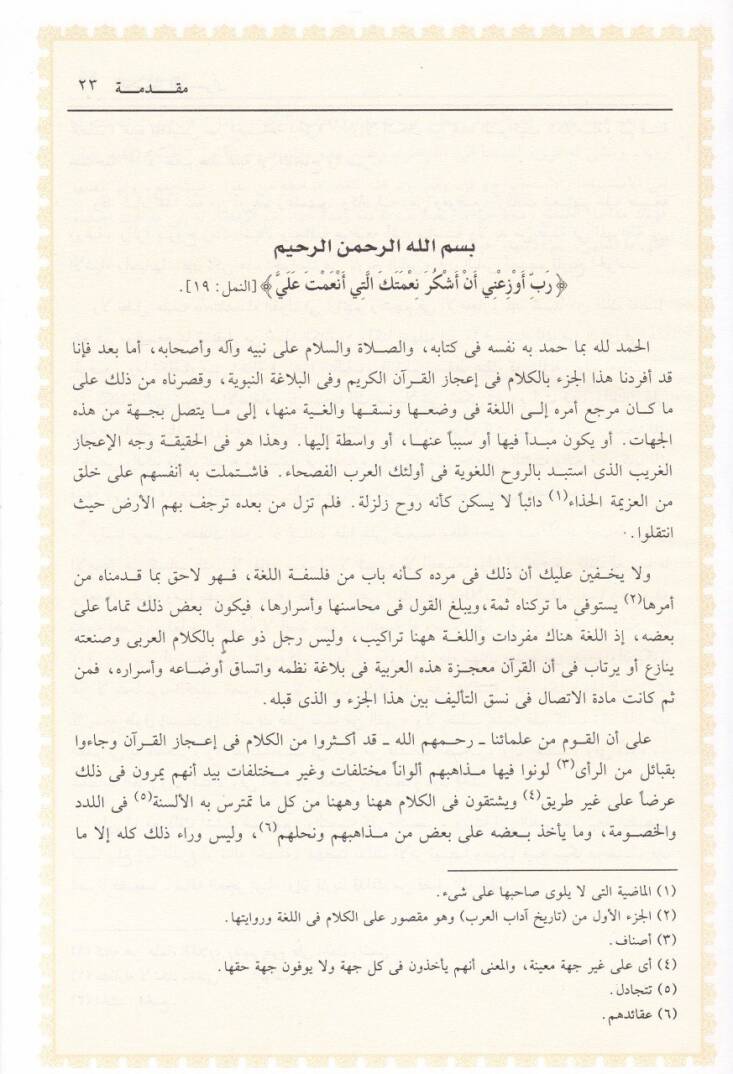 مقـدمـة ٢٣
بسم الله الرحمن الرحيم
﴿رَبِّ أَوْزِعْنِي أَنْ أَشْكُرَ نِعْمَتَكَ الَّتِي أَنْعَمْتَ عَلَيَّ﴾ [النمل: ١٩].
الحمد لله بما حمد به نفسه فى كتابه، والصـلاة والسلام على نبيه وآله وأصحابه، أما بعد فإنا
قد أفردنا هذا الجزء بالكلام فى إعجاز القـرآن الكريم وفى البلاغة النبوية، وقصرناه من ذلك على
ما كـان مرجع أمره إلـى اللغة فى وضعـها ونسقـها والغـية منها، إلى مـا يتصل بجـهة من هذه
الجهات. أو يكون مبـدأ فيها أو سبباً عنهـا، أو واسطة إليها. وهذا هو فى الحقيقـة وجه الإعجاز
الغريب الذى استبـد بالروح اللغوية فى أولئك العرب الفصحاء. فاشـتملت به أنفسهم على خلق
من العزيمة الحذاء(١) دائباً لا يسكن كأنه روح زلزلة. فلم تزل من بعده ترجف بهم الأرض حيث
انتقلوا.
ولا يخـفين عليك أن ذلك فى مرده كـأنه باب من فلسفـة اللغة، فـهو لاحق بما قدمناه من
أمرها(٢) يستوفى ما تركناه ثمة،ويبلغ القول فى محاسنها وأسرارها، فيكون بعض ذلك تماماً على
بعضه، إذ اللغة هناك مفردات واللغـة ههنا تراكيب، وليس رجل ذو علم بالكلام العربى وصنعته
ينازع أو يرتاب فى أن القرآن معجـزة هذه العربية فى بلاغة نظمه واتساق أوضـاعه وأسراره، فمن
ثم كانت مادة الاتصال فى نسق التأليف بين هذا الجزء و الذى قبله.
على أن القوم من علمائنا ـ رحـمهم الله ـ قد أكـثروا من الكلام فى إعـجاز القـرآن وجاءوا
بقبائل من الرأى(٣) لونوا فيها مـذاهبهم ألواناً مختلفات وغير مـختلفات بيد أنهم يمرون فى ذلك
عرضاً على غير طريق(٤) ويشتقون فى الكلام ههنا وههنا من كل ما تمترس به الألسنة(٥) فى اللدد
والخصـومة، وما يأخذ بـعضه على بعض من مـذاهبهم ونحلهم(٦)، وليس وراء ذلك كله إلا ما
(١) الماضية التى لا يلوى صاحبها على شىء.
(٢) الجزء الأول من (تاريخ آداب العرب) وهو مقصور على الكلام فى اللغة وروايتها.
(٣) أصناف.
(٤) أى على غير جهة معينة، والمعنى أنهم يأخذون فى كل جهة ولا يوفون جهة حقها.
(٥) تتجادل.
(٦) عقائدهم.